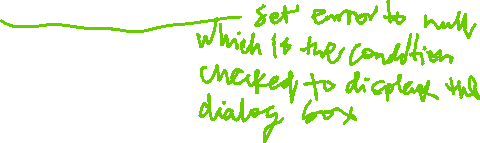 set error to null
which is the condition
checked to display the
dialog box